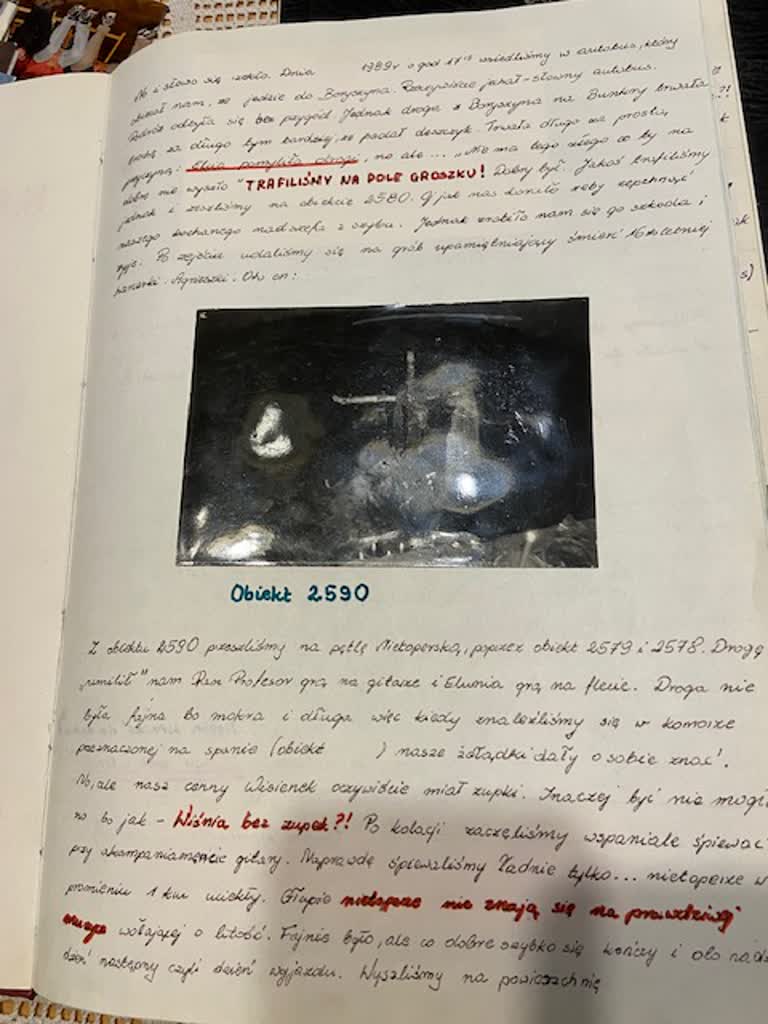 No i słowo się rzekło. Dnia 1989r o god 17 wsiedliśmy w autobus, który
obiecał nam, że jedzie do Boryszyna. Rzeczywiście jechał - słowny autobus.
Podróż odbyła się bez przygód. Jednak droga z Boryszyna na Bunkry trwała
trochę za długo tym bardziej, że padał deszczyk. Trwała długo za prostą
przyczyną: Elwa pomyliła drogi, no ale... "Nie ma tego złego co by na
dobre nie wyszło" TRAFILIŚMY NA POLE GROSZKU! Dobry był. Jakoś trafiliśmy
jednak i zeszliśmy na obiekcie 2580. O jak nas kusiło żeby zepchnąć
naszego kochanego z szybu. Jednak zrobiło nam się go szkoda i
żyje. Po zejściu udaliśmy się na grób upamiętniający śmierć 16sto letniej
harcerki Agnieszki. Oto on:
Obiekt 2590
Z obiektu 2590 przeszliśmy na pętlę Nietoperską, poprzez obiekt 2579 i 2578. Drogę
"umilił" nam Pan Profesor grą na gitarze i Elunia grą na flecie. Droga nie
była fajna bo mokra i długa więc kiedy znaleźliśmy się w komorze
przeznaczonej na spanie (obiekt ) nasze żołądki dały o sobie znać!
No, ale nasz cenny Wisienek oczywiście miał zupki. Inaczej być nie mogł
no bo jak - Wiśnia bez zupek?! Po kolacji zaczęliśmy wspaniale śpiewać
przy akompaniamencie gitary. Naprawdę śpiewaliśmy ładnie tylko... nietoperze w
promieniu 1 km uciekły. Głupie nietoperze nie znają się na prawdziwej
wołającej o litość. Fajnie było, ale co dobre szybko się kończy i oto nad
dzień następny czyli dzień wyjazdu. Wyszliśmy na powierzchnię